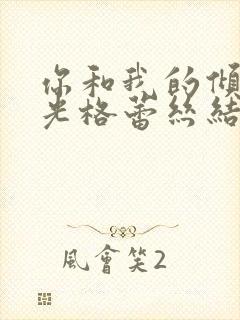 你和我的傾
光格蕾絲結
風會笑2